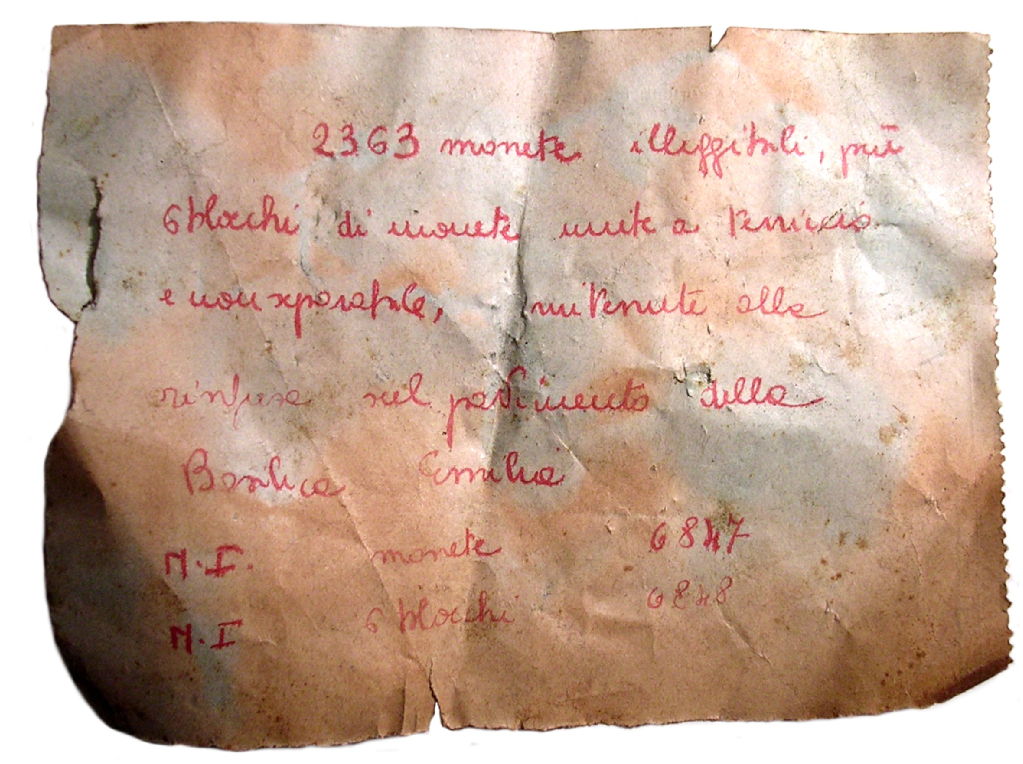 2363 monete illeggibili, più
6 blocchi di monete unite a
e non separabile, rinvenute alla
rinfusa nel pavimento della
Basilica Emilia
M.I. monete 6847
M.I 6 blocchi 6848